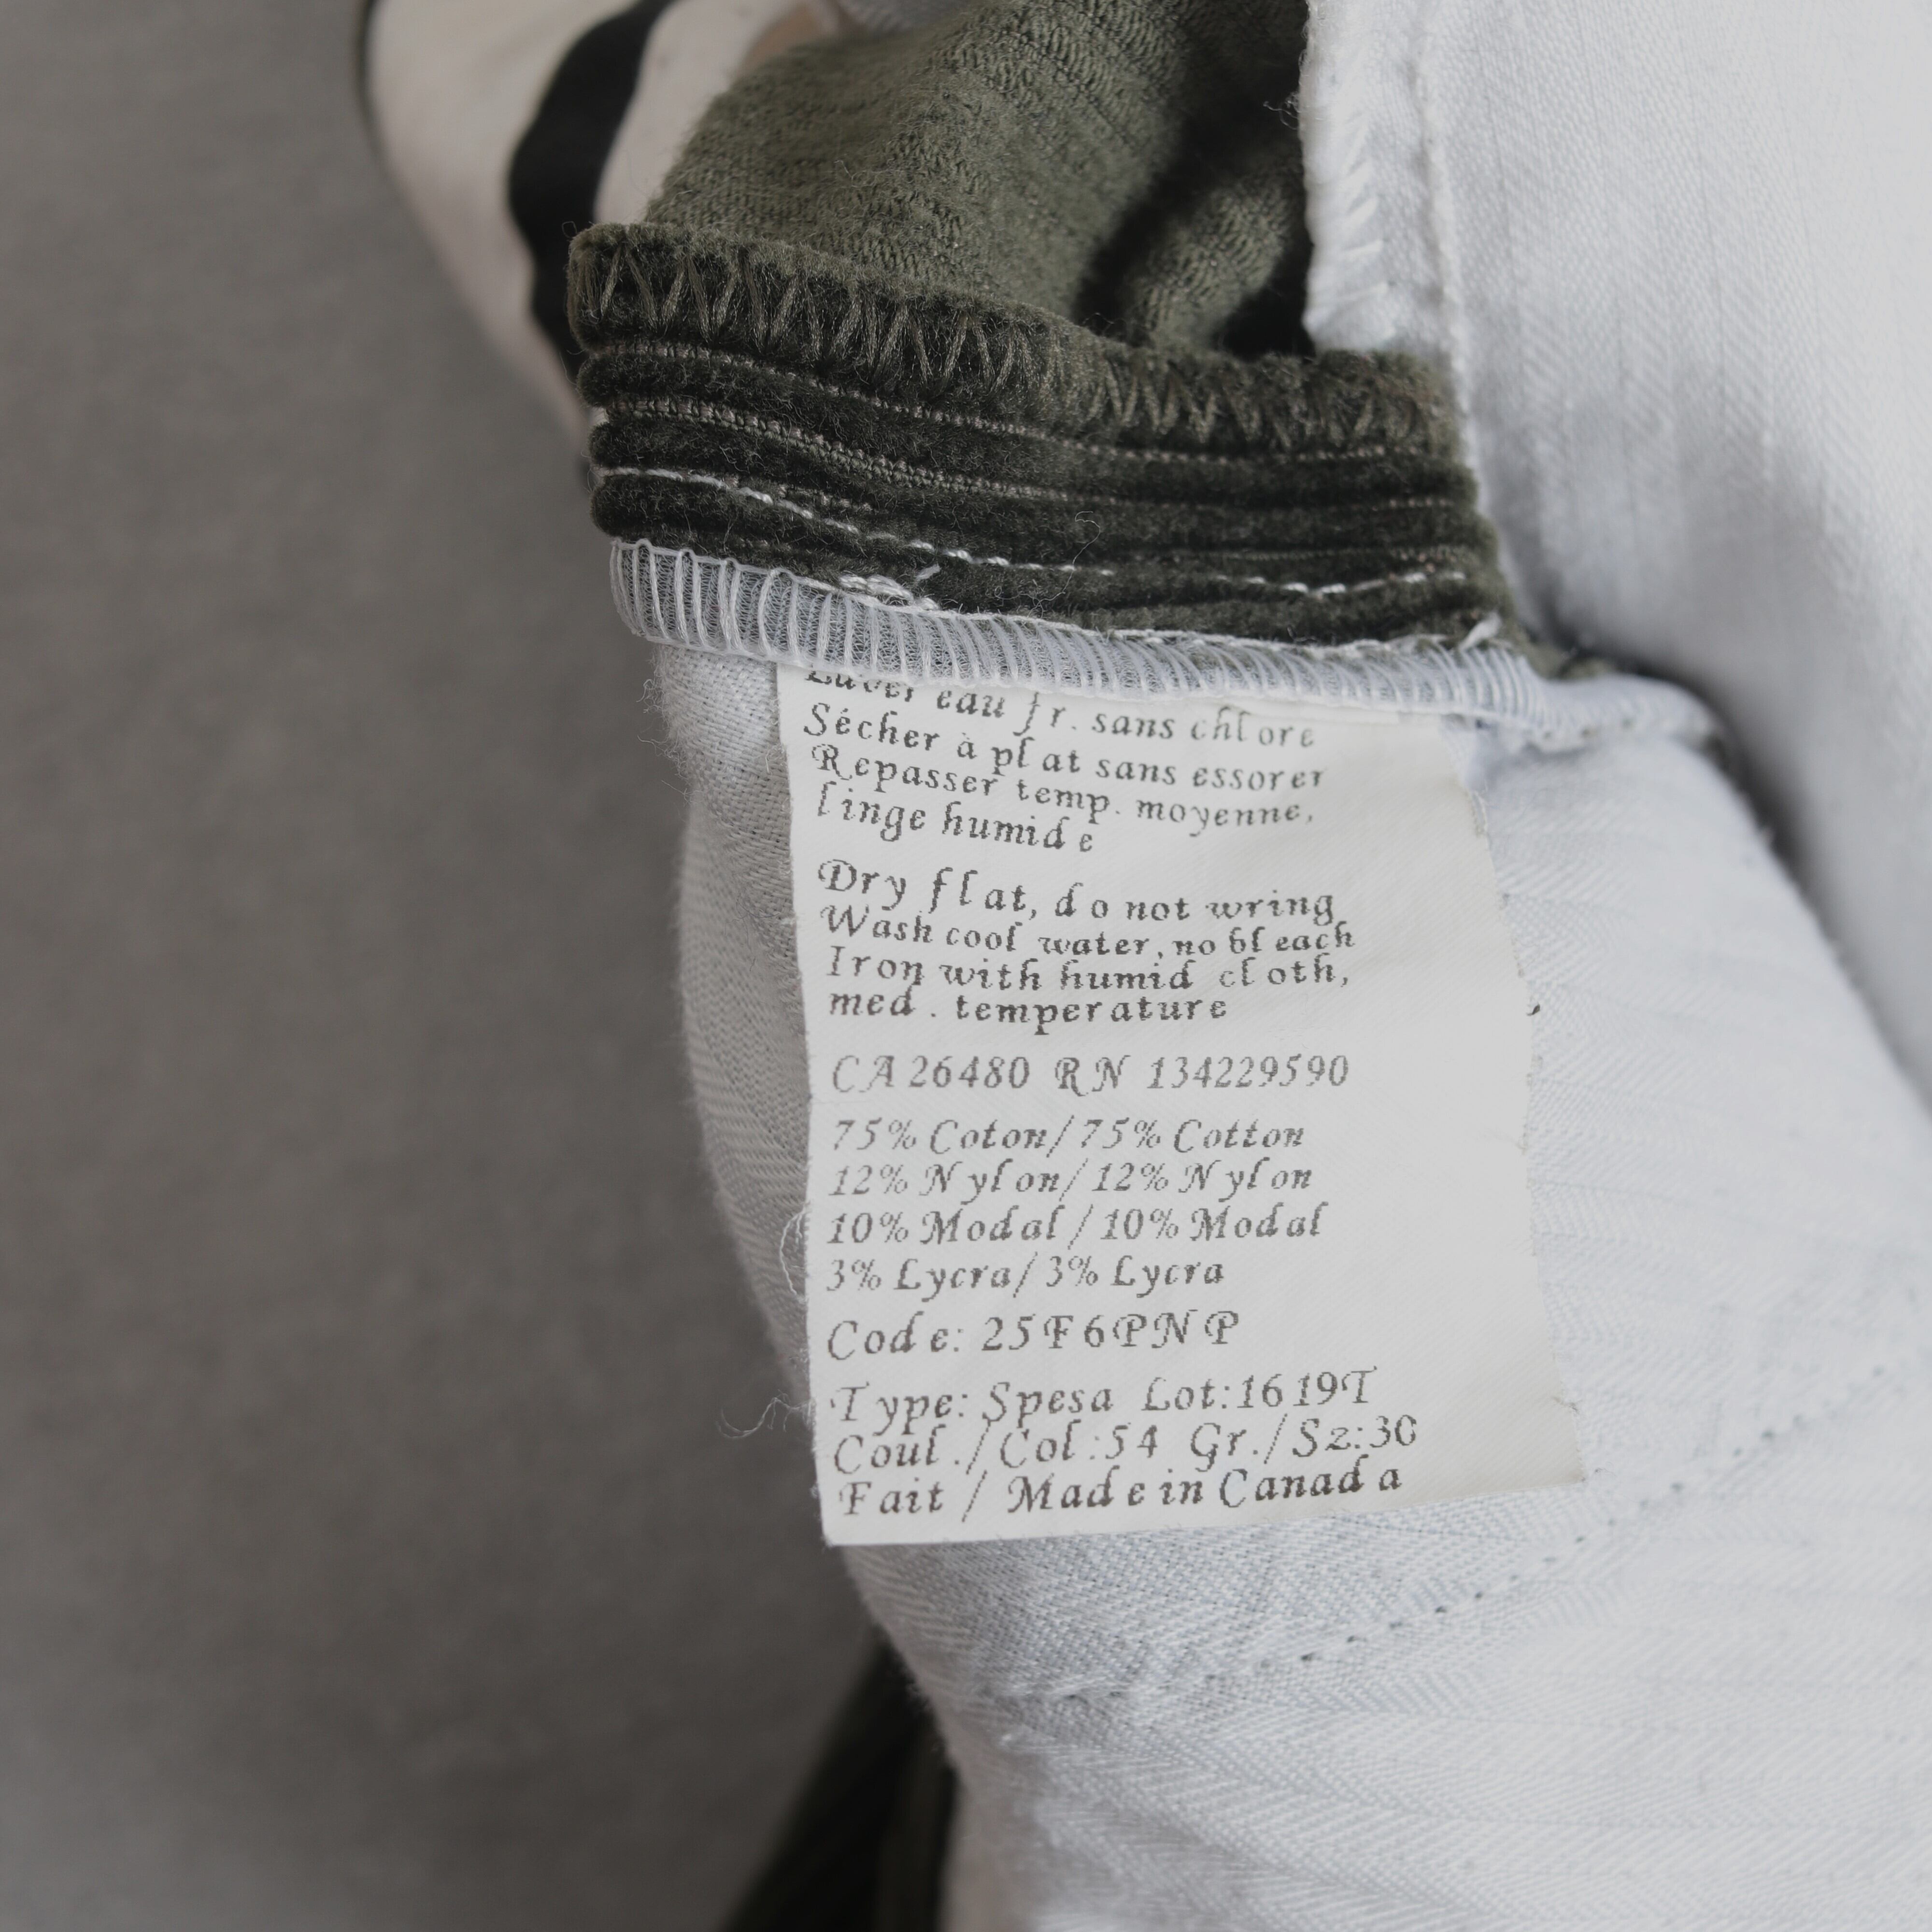 Laver eau fr. sans chlore
Sécher à plat sans essorer
Repasser temp. moyenne,
linge humide
Dry flat, do not wring
Wash cool water, no bleach
Iron with humid cloth,
med. temperature
CA 26480 RN 134229590
75% Coton/75% Cotton
12% Nylon/12% Nylon
10% Modal/10% Modal
3% Lycra/3% Lycra
Code: 25F6PNP
Type: Spesa Lot:1619T
Coul./Col:54 Gr./Sz:30
Fait / Made in Canada